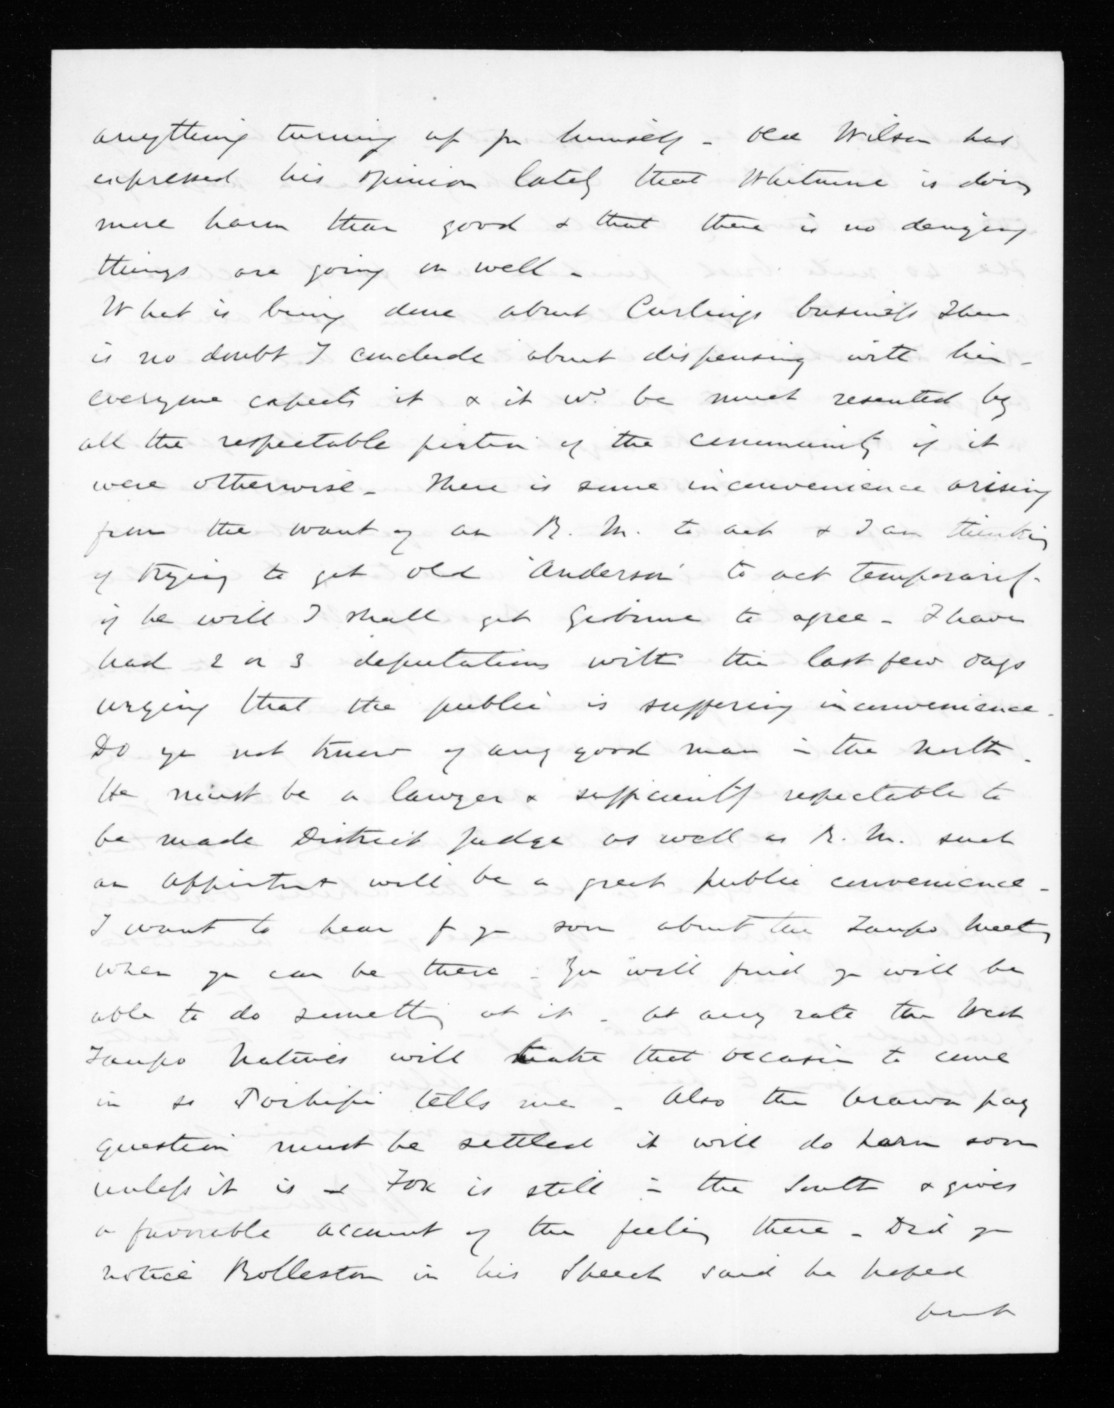 anything turning up for himself - Old Wilson has
expressed his opinion lately that Whitmore is doing
more harm than good & that there is no denying
things are going on well -
What is being done about Curlings business There
is no doubt I conclude about dispensing with him -
everyone expects it & it wd. be much resented by
all the respectable portion of the community if it
were otherwise - There is some inconvenience arising
from the want of an R. M. to act & I am thinking
of trying to get old Anderson to act temporarily -
if he will I shall get Gisborne to agree - I have
had 2 or 3 deputations with the last few days
urging that the public is suffering inconvenience -
Do you not know of any good man in the North -
He must be a lawyer & sufficiently respectable to
be made District Judge as well as R. M. such
an appointmt will be a great public convenience -
I want to hear fr you soon about the Taupo Meeting
when you can be there - You will find you will be
able to do something at it - At any rate the West
Taupo Natives will take that occasion to come
in so Poihipi tells me - Also the
question must be settled it will do harm soon
unless it is - Fox is still in the South & gives
a favorable account of the feeling there - Did you
notice Rolleston in his Speech said he hoped